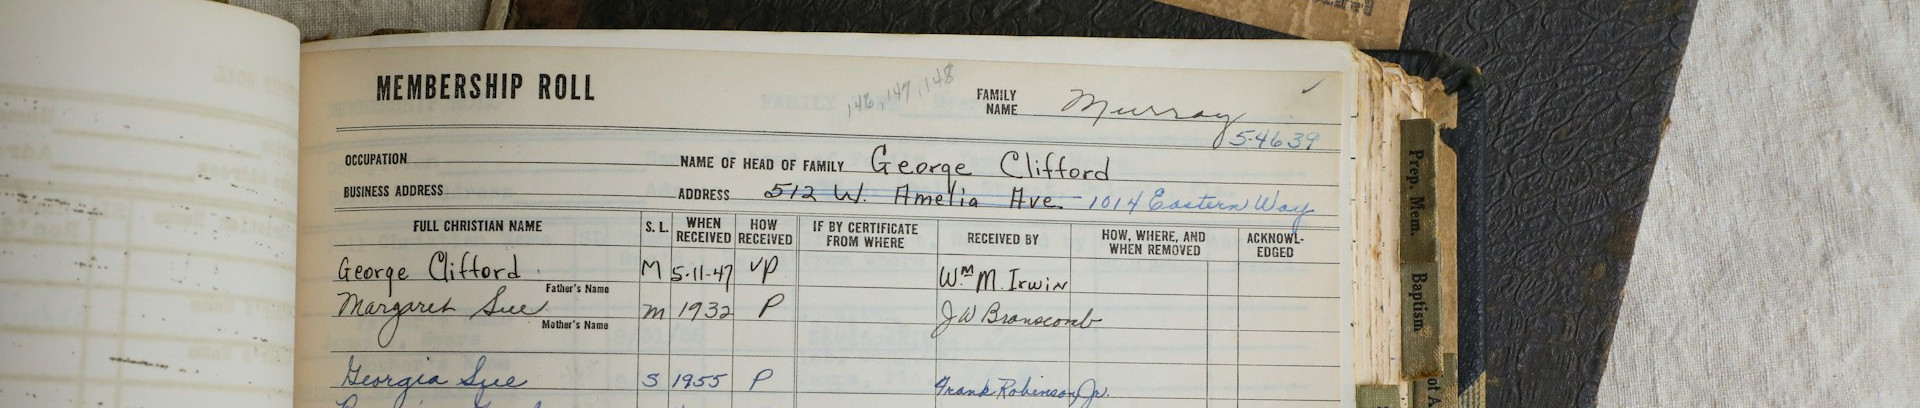 MEMBERSHIP ROLL
146, 147, 148
FAMILY NAME Murray
5-4639
OCCUPATION NAME OF HEAD OF FAMILY George Clifford
BUSINESS ADDRESS ADDRESS 512 W. Amelia Ave. 1014 Eastern Way
FULL CHRISTIAN NAME S. L. WHEN RECEIVED HOW RECEIVED IF BY CERTIFICATE FROM WHERE RECEIVED BY HOW, WHERE, AND WHEN REMOVED ACKNOWL-EDGED
George Clifford M 5-11-47 VP Wm M. Irwin
Father's Name
Margaret Sue M 1932 P J W Branscomb
Mother's Name
Georgia Sue S 1955 P Frank Robinson, Jr.
Prep. Mem.
Baptism